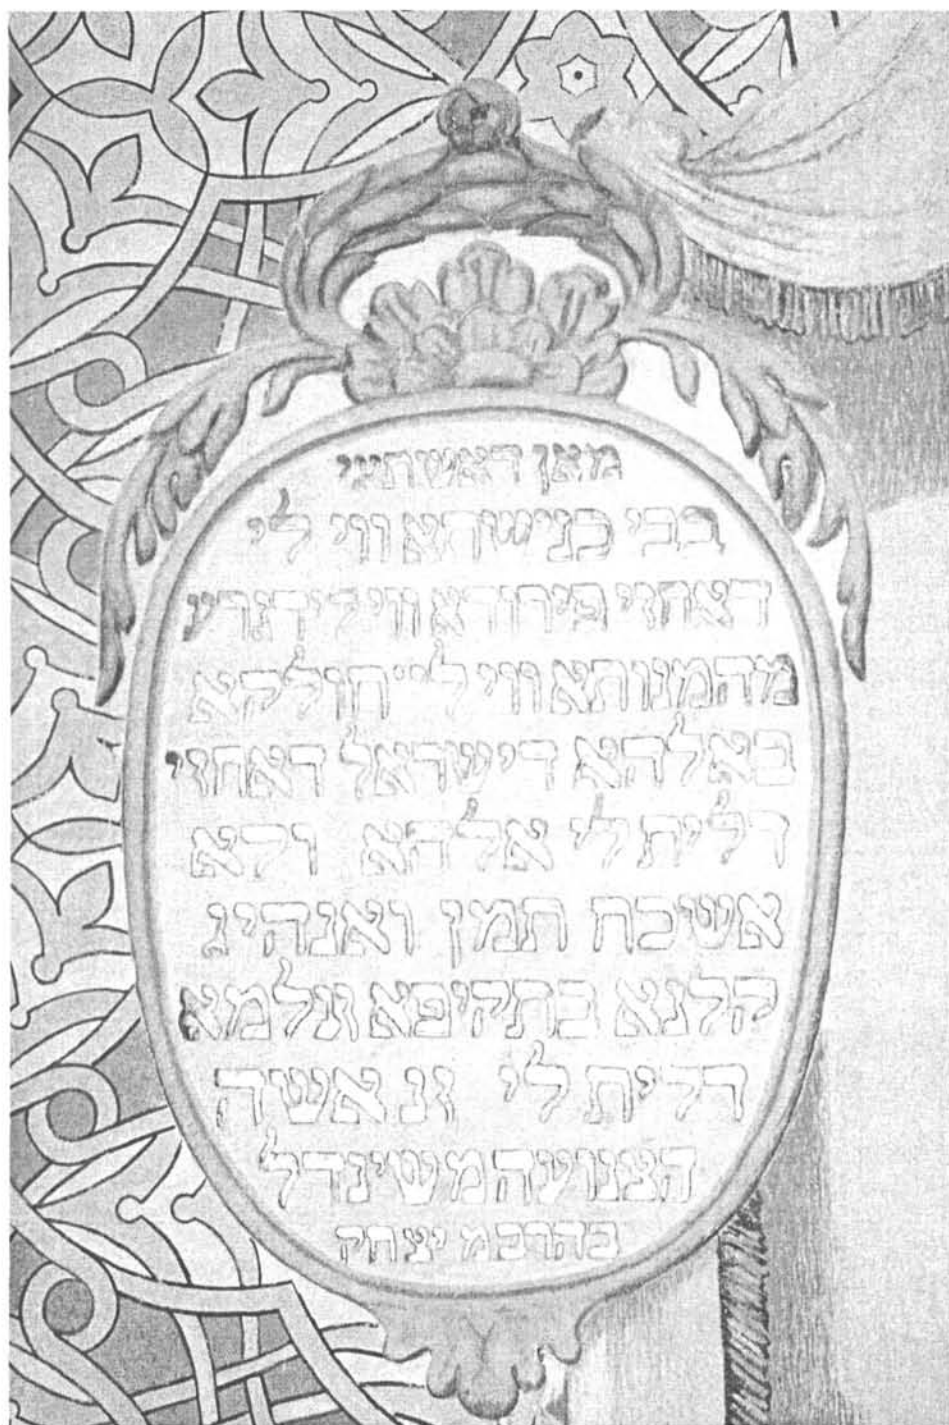 מאן דאשתעי
בבי כנישהא ווי לי
דאחזי פירודא ווי לי דגרע
מהמנותא ווי לי״ חולקא
באלהא דישראל דאחזי
דלית לי אלהא וקא
אשיכח תמן ואנהיג
קלנא בתקיפא עלמא
דלית לי זנ אשה
הצנועה מ שינדל
בהרב מ יצחק